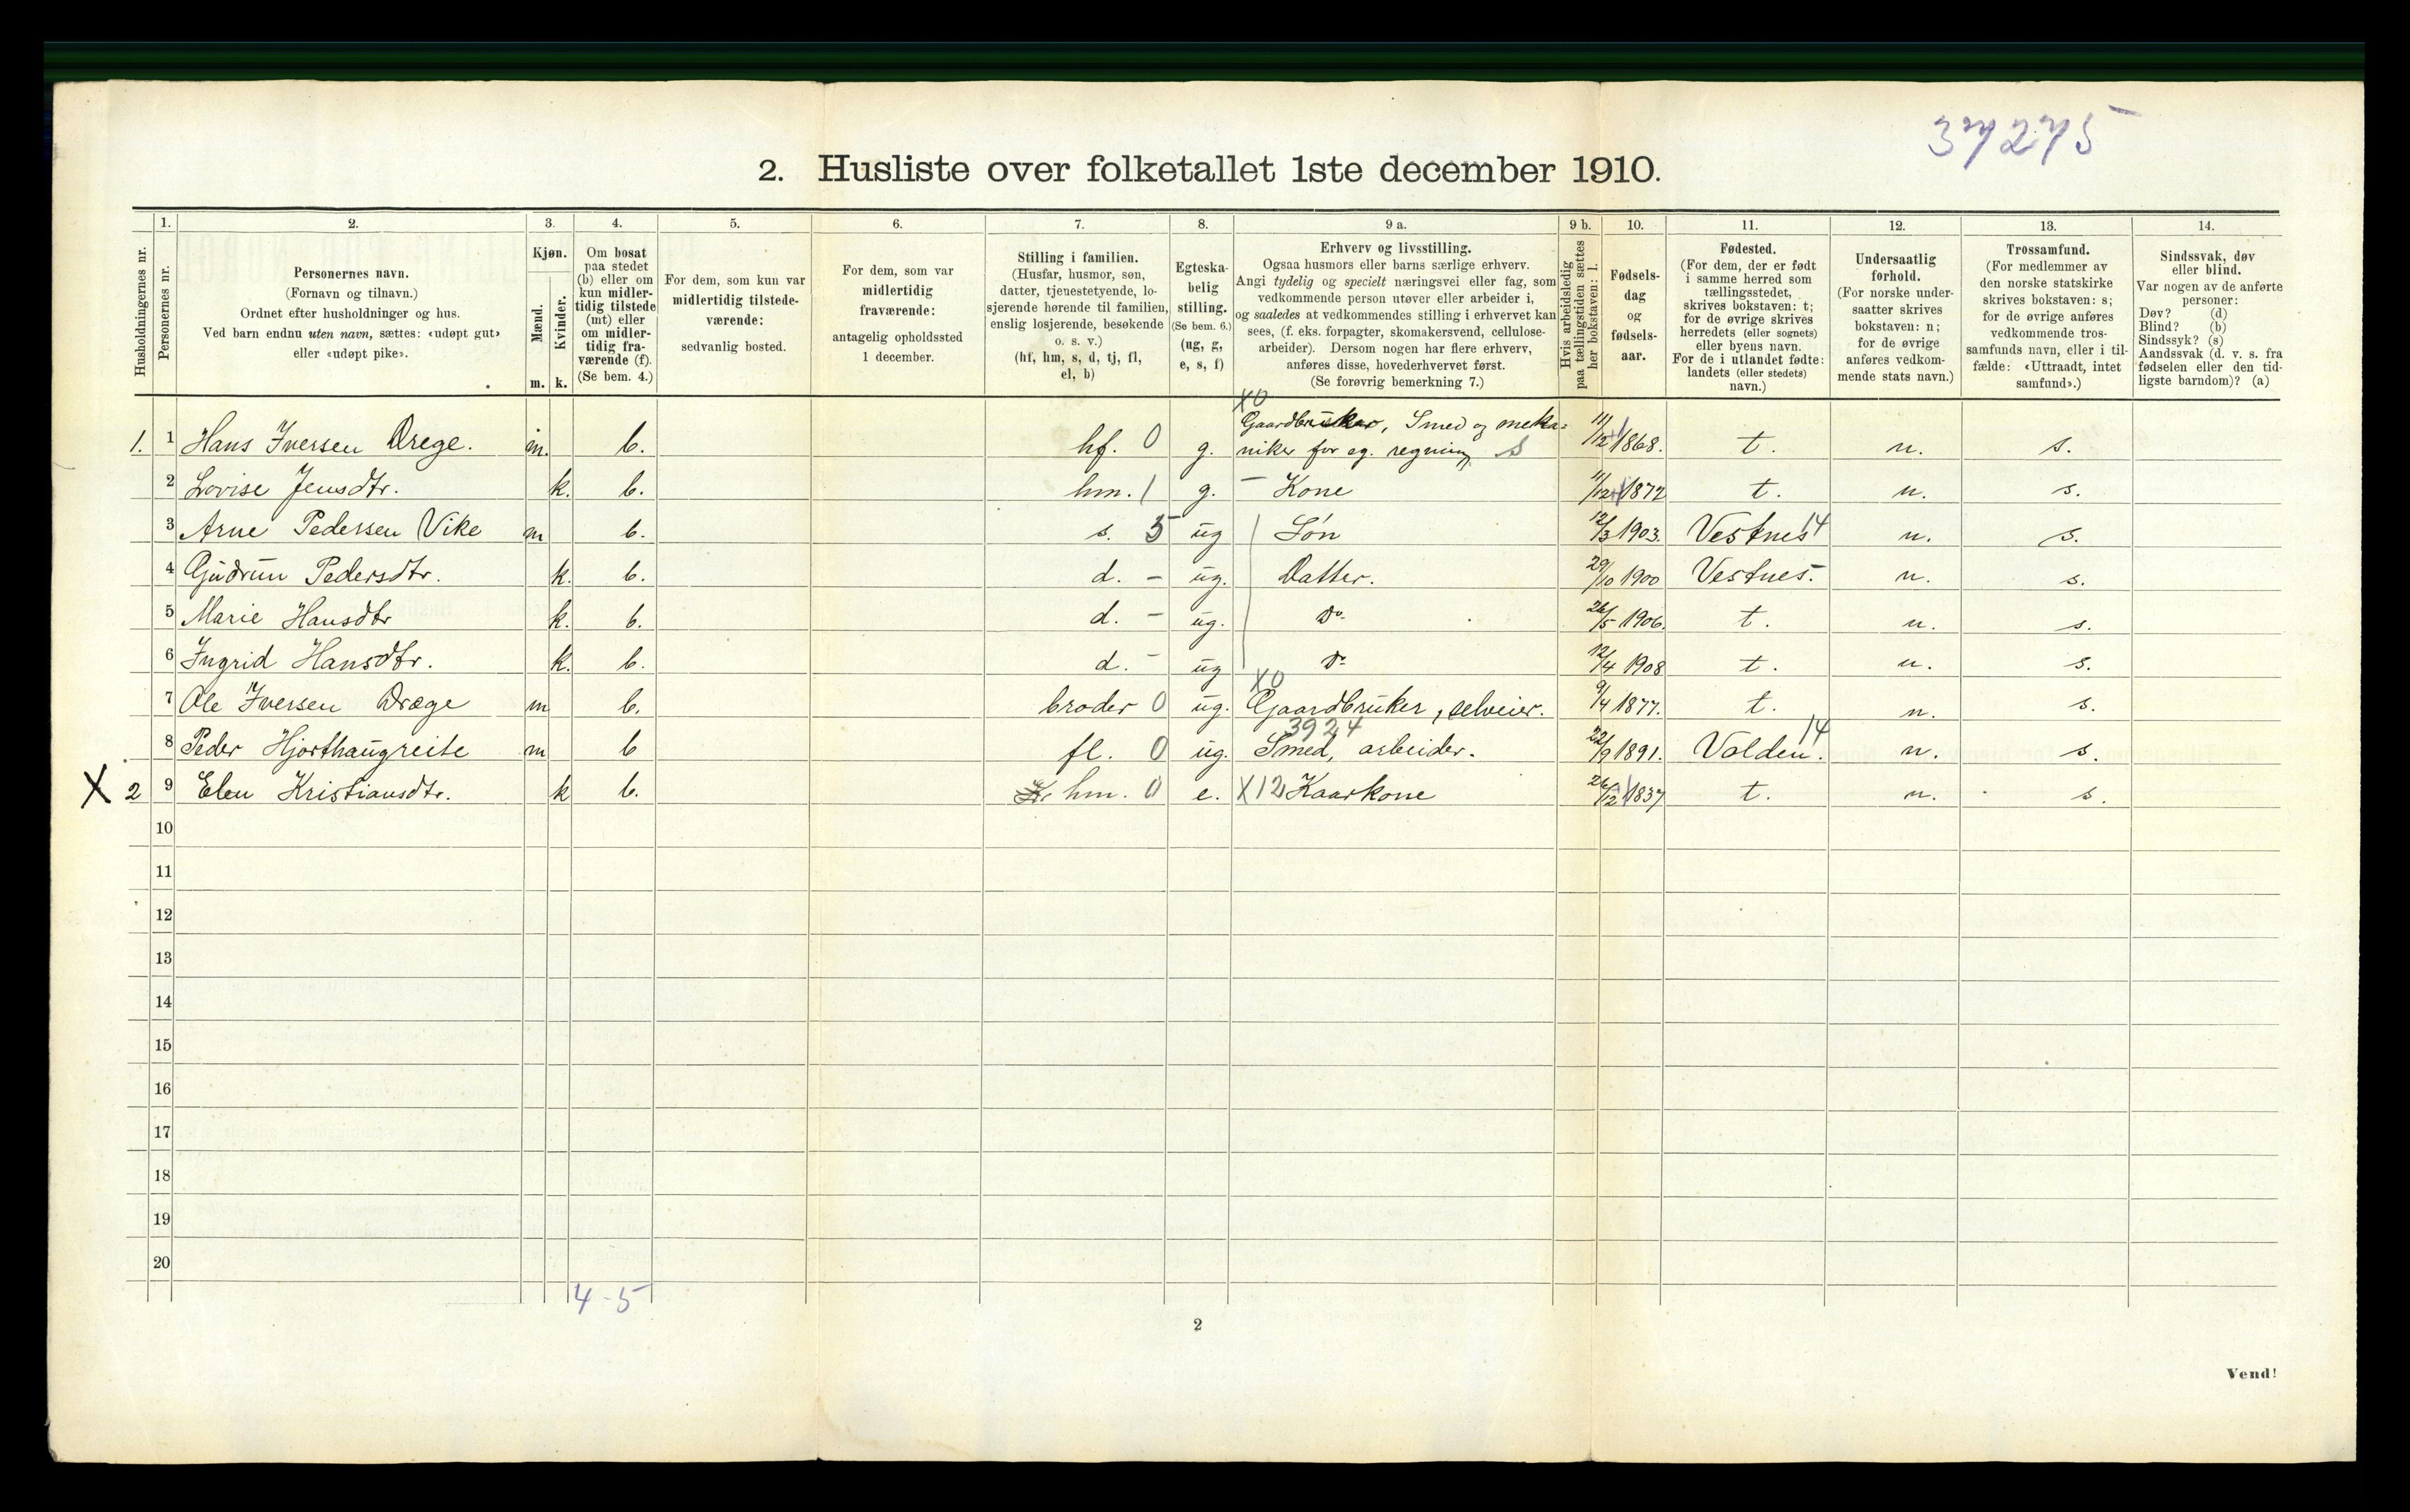 37275
2. Husliste over folketallet 1ste december 1910.
Husholdningernes nr.
1. Personernes nr.
2. Personernes navn.
(Fornavn og tilnavn.)
Ordnet efter husholdninger og hus.
Ved barn endnu uten navn, sættes: «udøpt gut»
eller «udøpt pike».
3. Kjøn.
Mænd. Kvinder.
m. k.
4. Om bosat
paa stedet
(b) eller om
kun midler-
tidig tilstede
(mt) eller
om midler-
tidig fra-
værende (f).
(Se bem. 4.)
5. For dem, som kun var
midlertidig tilstede-
værende:
sedvanlig bosted.
6. For dem, som var
midlertidig
fraværende:
antagelig opholdssted
1 december.
7. Stilling i familien.
(Husfar, husmor, søn,
datter, tjenestetyende, lo-
sjerende hørende til familien,
enslig losjerende, besøkende
o. s. v.)
(hf, hm, s, d, tj, fl,
el, b)
8. Egteska-
belig
stilling.
(Se bem. 6.)
(ug, g,
e, s, f)
9 a. Erhverv og livsstilling.
Ogsaa husmors eller barns særlige erhverv.
Angi tydelig og specielt næringsvei eller fag, som
vedkommende person utøver eller arbeider i,
og saaledes at vedkommendes stilling i erhvervet kan
sees, (f. eks. forpagter, skomakersvend, cellulose-
arbeider). Dersom nogen har flere erhverv,
anføres disse, hovederhvervet først.
(Se forøvrig bemerkning 7.)
9 b. Hvis arbeidsledig
paa tællingstiden sættes
her bokstaven: l.
10. Fødsels-
dag
og
fødsels-
aar.
11. Fødested.
(For dem, der er født
i samme herred som
tællingsstedet,
skrives bokstaven: t;
for de øvrige skrives
herredets (eller sognets)
eller byens navn.
For de i utlandet fødte:
landets (eller stedets)
navn.)
12. Undersaatlig
forhold.
(For norske under-
saatter skrives
bokstaven: n;
for de øvrige
anføres vedkom-
mende stats navn.)
13. Trossamfund.
(For medlemmer av
den norske statskirke
skrives bokstaven: s;
for de øvrige anføres
vedkommende tros-
samfunds navn, eller i til-
fælde: «Uttraadt, intet
samfund».)
14. Sindssvak, døv
eller blind.
Var nogen av de anførte
personer:
Døv? (d)
Blind? (b)
Sindssyk? (s)
Aandssvak (d. v. s. fra
fødselen eller den tid-
ligste barndom)? (a)
X0
1. 1 Hans Iversen Drege. m. b. hf. 0 g. Gaardbruker, Smed og meka-
niker for eg. regning S 11/12 1868. t. n. s.
2 Lovise Jensdtr. k. b. hm. 1 g. - Kone 11/12 1872 t. n. s.
3 Arne Pedersen Vike m b. s. 5 ug Søn 12/3 1903. Vestnes 14 n. s.
4 Gudrun Pedersdtr. k. b. d. - ug. Datter. 29/10 1900 Vestnes. n. s.
5 Marie Hansdtr k. b. d. - ug. Do 26/5 1906. t. n. s.
6 Ingrid Hansdtr. k. b. d. - ug Do 12/4 1908 t. n. s.
X0
7 Ole Iversen Dræge m b. broder 0 ug. Gaardbruker, selveier. 9/4 1877. t. n. s.
3924
8 Peder Hjorthaugreite m b fl. 0 ug. Smed, arbeider. 22/9 1891. Volden. 14 n. s.
X 2 9 Elen Kristiansdtr. k b. hm. 0 e. X12 Kaarkone 26/12 1837 t. n. s.
10
11
12
13
14
15
16
17
18
19
20
4-5
2
Vend!